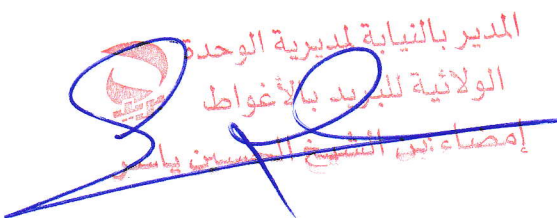 المدير بالنيابة لمديرية الوحدة
الولائية للبريد بالأغواط
إمضاء: بن الشيخ الحسين ياسر